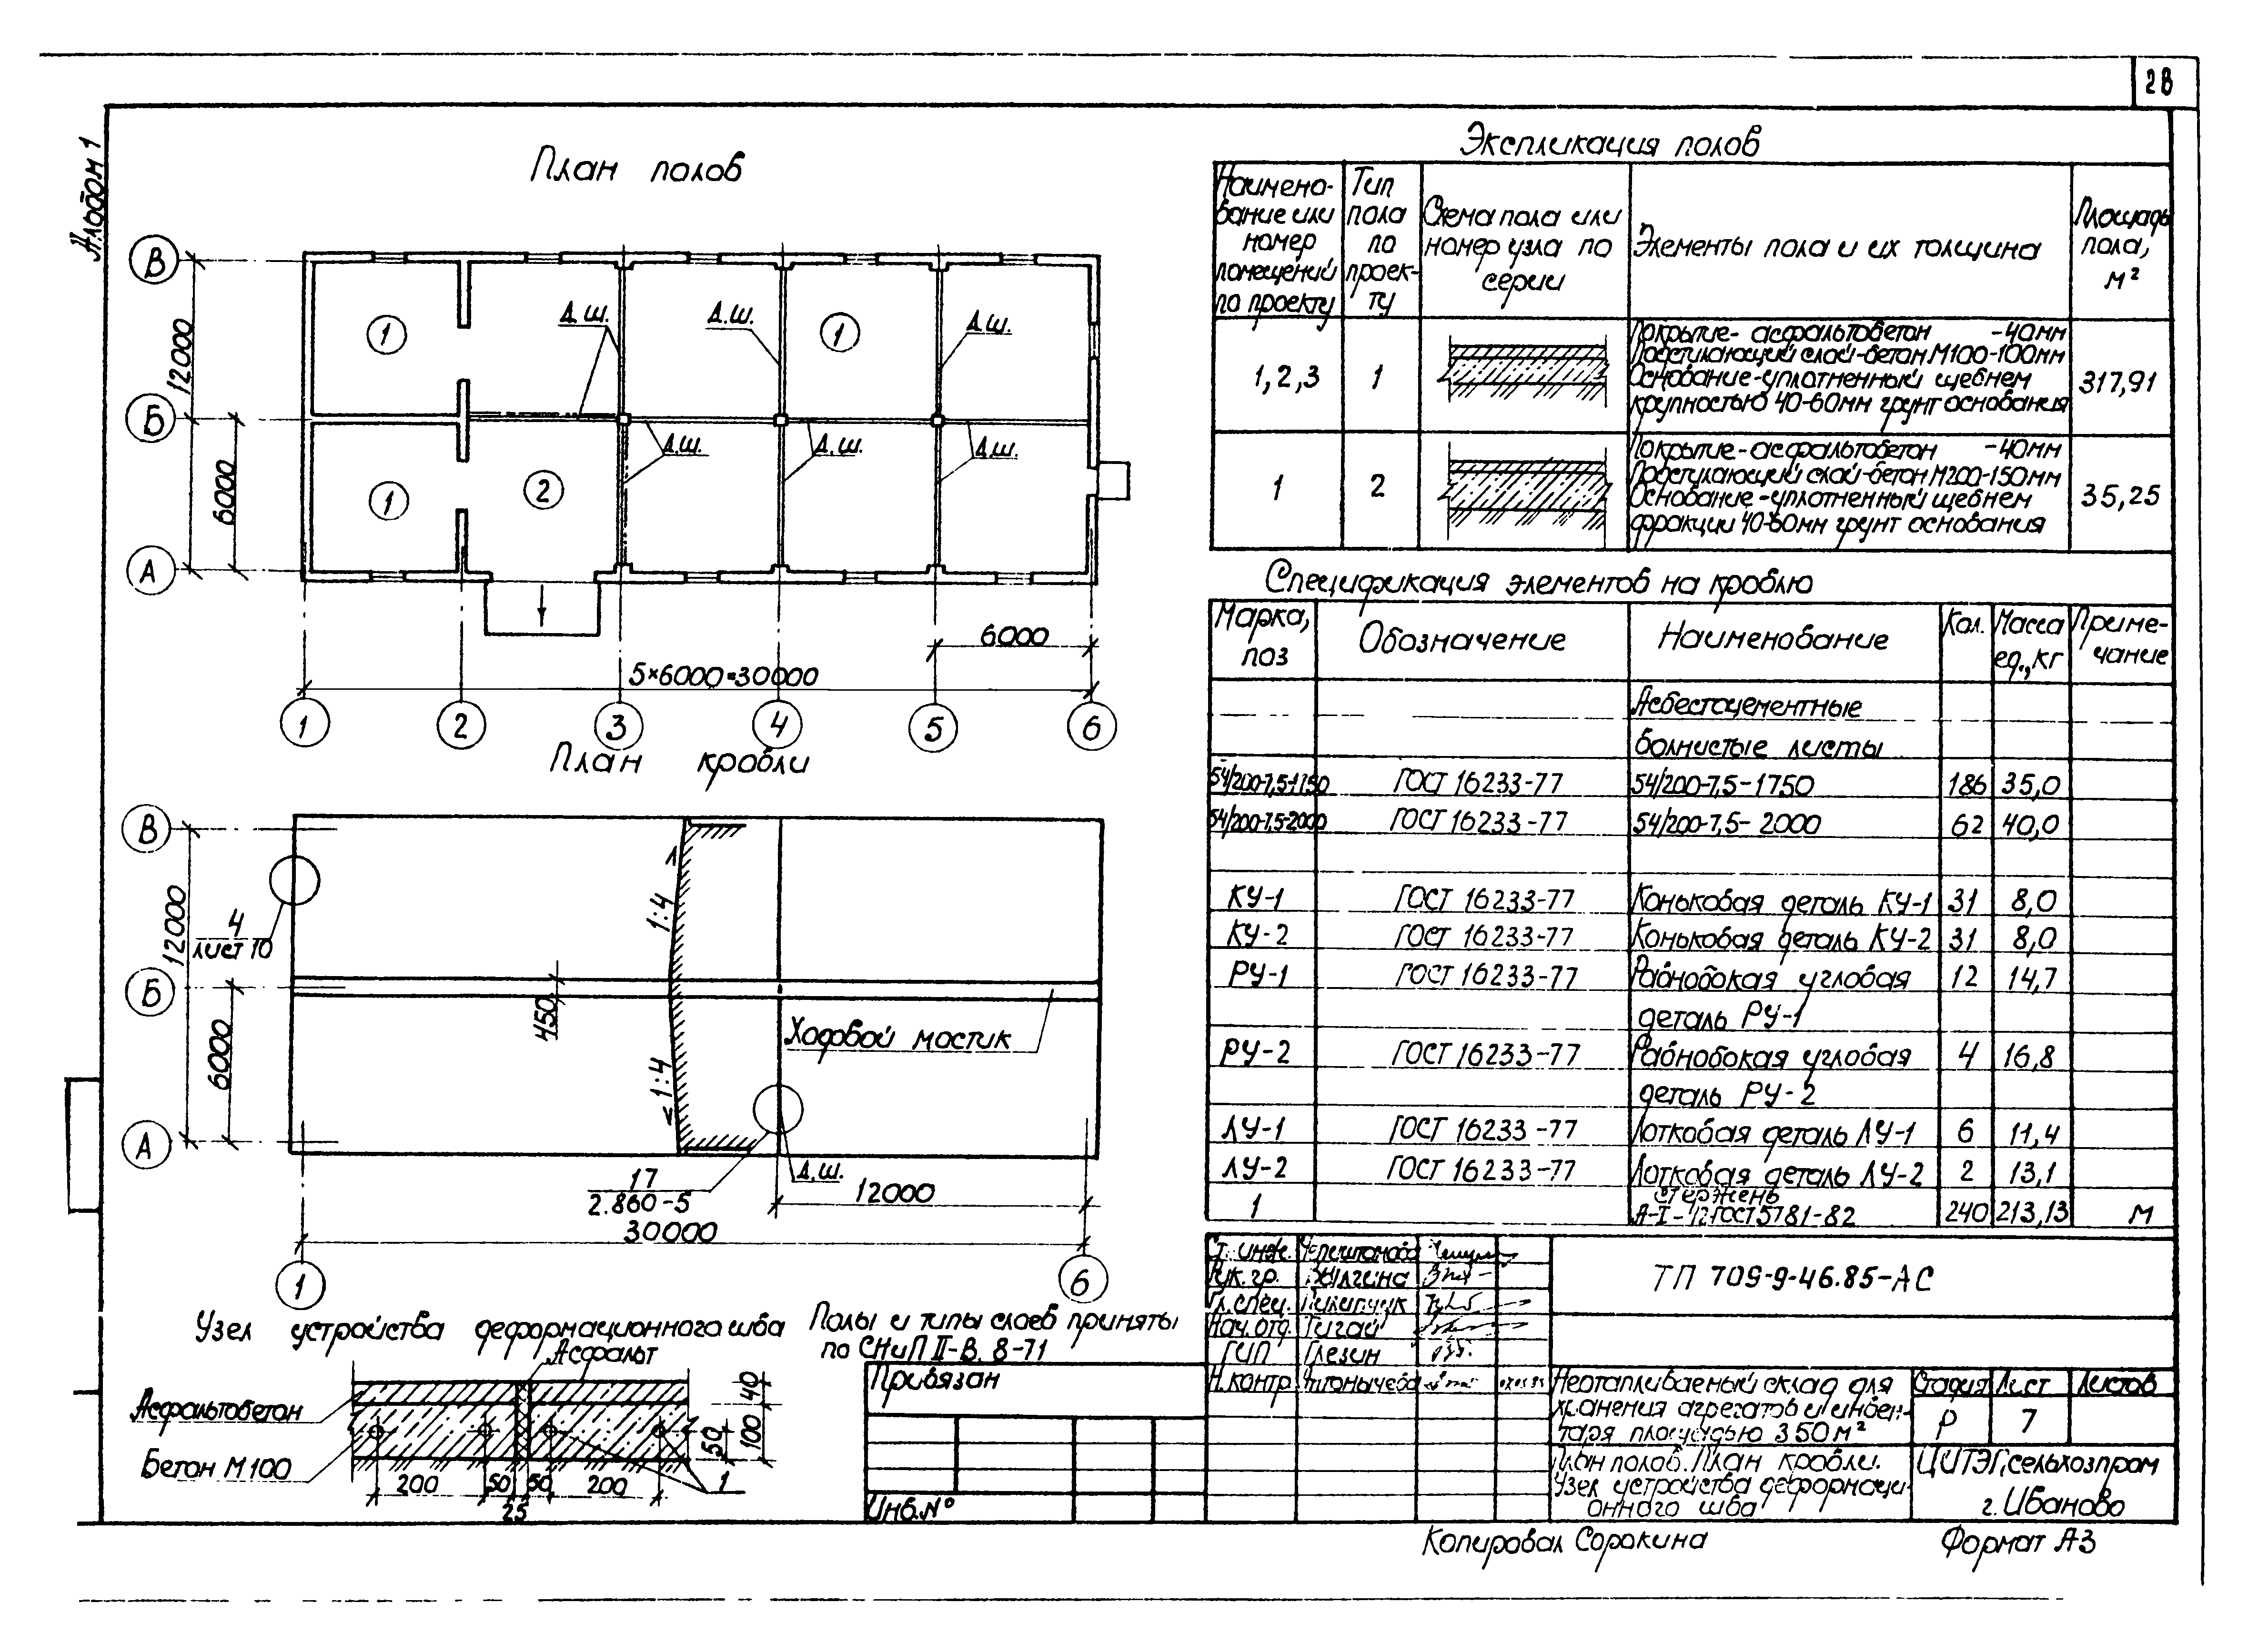 28
Альбом 1
План полов
В
Б
А
12000
6000
1
1
1
2
Д.Ш.
Д.Ш.
Д.Ш.
Д.Ш.
Д.Ш.
Д.Ш.
6000
5×6000=30000
1
2
3
4
5
6
План кровли
В
Б
А
12000
6000
4
лист 10
1:4
1:4
450
Ходовой мостик
17
2.860-5
Д.Ш.
12000
30000
1
6
Узел устройства деформационного шва
Асфальт
Асфальтобетон
Бетон М100
200
50
50
200
25
1
40
100
50
Полы и типы слоев приняты
по СНиП II-В. 8-71
Экспликация полов
Наимено-
вание или
номер
помещений
по проекту
Тип
пола
по
проек-
ту
Схема пола или
номер узла по
серии
Элементы пола и их толщина
Площадь
пола,
м²
1,2,3
1
Покрытие- асфальтобетон -40мм
Подстилающий слой-бетон М100-100мм
Основание-уплотненный щебнем
крупностью 40-60мм грунт основания
317,91
1
2
Покрытие-асфальтобетон -40мм
Подстилающий слой-бетон М200-150мм
Основание-уплотненный щебнем
фракции 40-60мм грунт основания
35,25
Спецификация элементов на кровлю
Марка,
поз
Обозначение
Наименование
Кол.
Масса
ед.,кг
Приме-
чание
Асбестоцементные
волнистые листы
54/200-7,5-1750 ГОСТ 16233-77 54/200-7,5-1750 186 35,0
54/200-7,5-2000 ГОСТ 16233-77 54/200-7,5-2000 62 40,0
КУ-1 ГОСТ 16233-77 Коньковая деталь КУ-1 31 8,0
КУ-2 ГОСТ 16233-77 Коньковая деталь КУ-2 31 8,0
РУ-1 ГОСТ 16233-77 Равнобокая угловая 12 14,7
деталь РУ-1
РУ-2 ГОСТ 16233-77 Равнобокая угловая 4 16,8
деталь РУ-2
ЛУ-1 ГОСТ 16233-77 Лотковая деталь ЛУ-1 6 11,4
ЛУ-2 ГОСТ 16233-77 Лотковая деталь ЛУ-2 2 13,1
стержень
1 А-I-12 ГОСТ 5781-82 240 213,13 м
Ст. инж.
Рук. гр. Вылгина
Гл. спец. Пилипчук
Нач. отд. Тигай
ГИП Глезин
Н.контр
ТП 709-9-46.85-АС
Неотапливаемый склад для
хранения агрегатов и инвен-
таря площадью 350м²
Стадия Лист Листов
Р 7
План полов. План кровли.
Узел устройства деформаци-
онного шва
ЦИТЭПсельхозпром
г.Иваново
Привязан
Инв.№
Копировал Сорокина
Формат А3